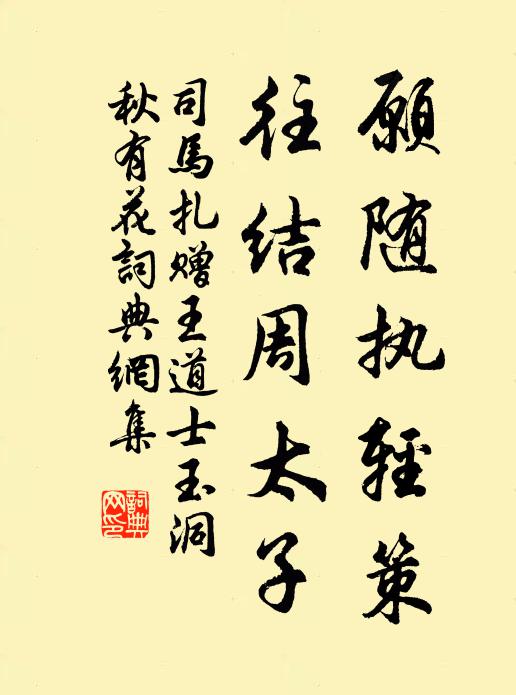 願随执輕策
往结周太子
司馬扎赠王道士玉洞
秋有花詞典網集
詞典
网印